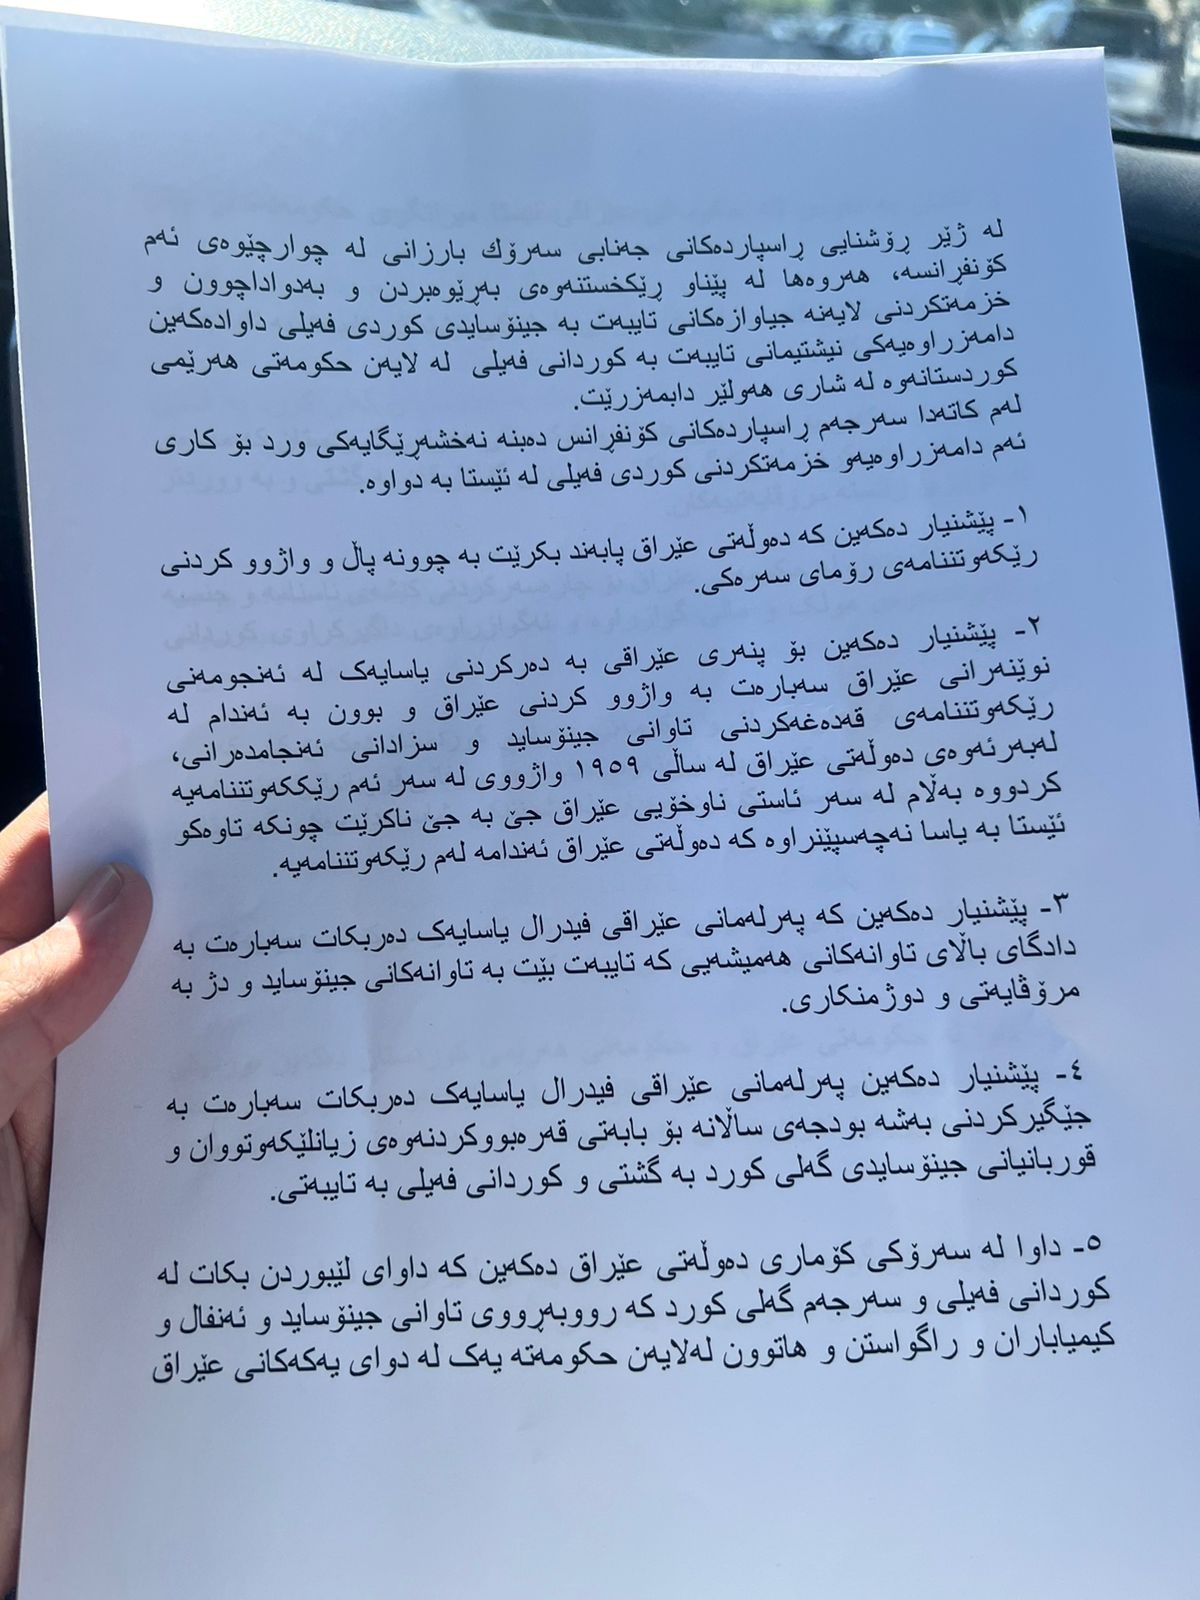 له ژێر ڕۆشنایی ڕاسپاردەکانی جەنابی سەرۆك بارزانی لە چوارچێوەی ئەم
کۆنفڕانسە، هەروەها لە پێناو ڕێکخستنەوەی بەڕێوەبردن و بەدواداچوون و
خزمەتکردنی لایەنە جیاوازەکانی تایبەت بە جینۆسایدی کوردی فەیلی داوادەکەین
دامەزراوەیەکی نیشتیمانی تایبەت بە کوردانی فەیلی لە لایەن حکومەتی هەرێمی
کوردستانەوە لە شاری هەولێر دابمەزرێت.
لەم کاتەدا سەرجەم ڕاسپاردەکانی کۆنفڕانس دەبنە نەخشەڕێگایەکی ورد بۆ کاری
ئەم دامەزراوەیەو خزمەتکردنی کوردی فەیلی لە ئێستا بە دواوە.
١- پێشنیار دەکەین کە دەوڵەتی عێراق پابەند بکرێت بە چوونە پاڵ و واژوو کردنی
رێکەوتننامەی رۆمای سەرەکی.
٢- پێشنیار دەکەین بۆ پنەری عێراقی بە دەرکردنی یاسایەک لە ئەنجومەنی
نوێنەرانی عێراق سەبارەت بە واژوو کردنی عێراق و بوون بە ئەندام لە
رێکەوتننامەی قەدەغەکردنی تاوانی جینۆساید و سزادانی ئەنجامدەرانی،
لەبەرئەوەی دەوڵەتی عێراق لە ساڵی ١٩٥٩ واژوووی لە سەر ئەم رێککەوتننامەیە
کردووە بەڵام لە سەر ئاستی ناوخۆیی عێراق جێ بە جێ ناکرێت چونکە تاوەکو
ئێستا بە یاسا نەچەسپێنراوە کە دەوڵەتی عێراق ئەندامە لەم رێکەوتننامەیە.
٣- پێشنیار دەکەین کە پەرلەمانی عێراقی فیدرال یاسایەک دەربکات سەبارەت بە
دادگای باڵای تاوانەکانی هەمیشەیی کە تایبەت بێت بە تاوانەکانی جینۆساید و دژ بە
مرۆڤایەتی و دوژمنکاری.
٤- پێشنیار دەکەین پەرلەمانی عێراقی فیدرال یاسایەک دەربکات سەبارەت بە
جێگیرکردنی بەشە بودجەی ساڵانە بۆ بابەتی قەرەبووکردنەوەی زیانلێکەوتووان و
قوربانیانی جینۆسایدی گەلی کورد بە گشتی و کوردانی فەیلی بە تایبەتی.
٥- داوا لە سەرۆکی کۆماری دەوڵەتی عێراق دەکەین کە داوای لێبوردن بکات لە
کوردانی فەیلی و سەرجەم گەلی کورد کە رووبەڕووی تاوانی جینۆساید و ئەنفال و
کیمیاباران و راگواستن و هاتوون لەلایەن حکومەتە یەک لە دوای یەکەکانی عێراق